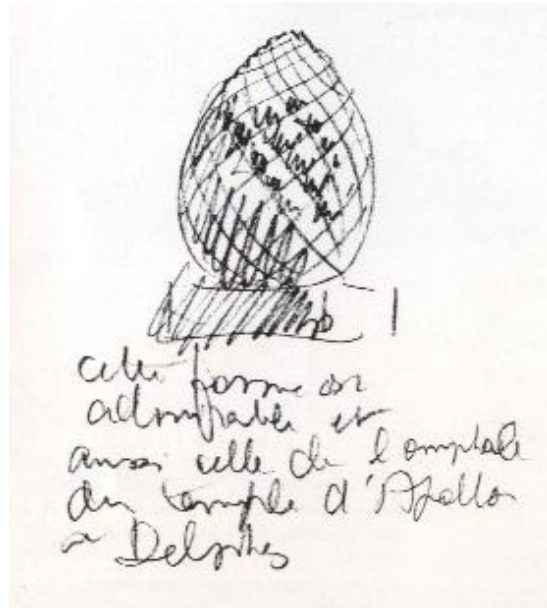 cette forme est
admirable et
aussi celle de l'omphale
du temple d'Apollon
a Delphes